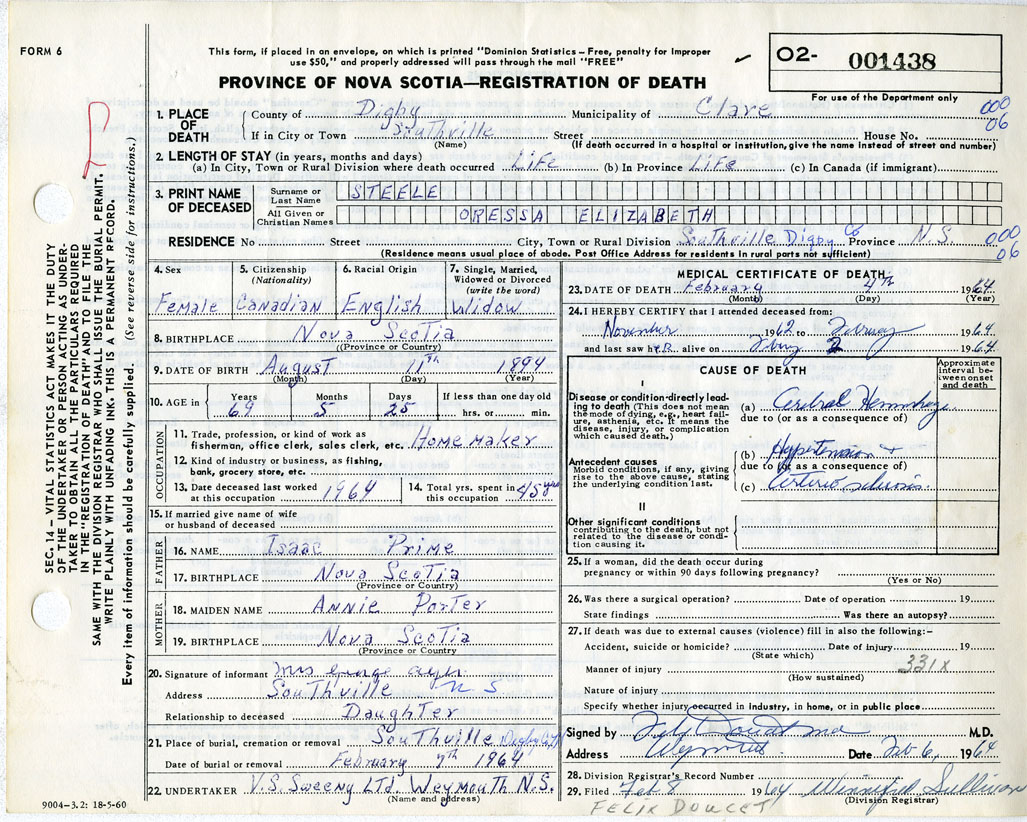 FORM 6
This form, if placed in an envelope, on which is printed "Dominion Statistics – Free, penalty for improper
use $50," and properly addressed will pass through the mail "FREE"
PROVINCE OF NOVA SCOTIA—REGISTRATION OF DEATH
O2- 001438
For use of the Department only
1. PLACE OF DEATH
County of Digby Municipality of Clare
000
06
If in City or Town Southville Street House No.
(Name) (If death occurred in a hospital or institution, give the name instead of street and number)
2. LENGTH OF STAY (in years, months and days)
(a) In City, Town or Rural Division where death occurred Life (b) In Province Life (c) In Canada (if immigrant)
3. PRINT NAME OF DECEASED
Surname or Last Name STEELE
All Given or Christian Names ORESSA ELIZABETH
RESIDENCE No Street City, Town or Rural Division Southville Digby Co Province N.S.
000
06
(Residence means usual place of abode. Post Office Address for residents in rural parts not sufficient)
4. Sex Female
5. Citizenship (Nationality) Canadian
6. Racial Origin English
7. Single, Married, Widowed or Divorced (write the word) Widow
8. BIRTHPLACE Nova Scotia
(Province or Country)
9. DATE OF BIRTH August 11th 1894
(Month) (Day) (Year)
10. AGE in Years Months Days If less than one day old
69 5 25 hrs. or min.
OCCUPATION
11. Trade, profession, or kind of work as
fisherman, office clerk, sales clerk, etc. Homemaker
12. Kind of industry or business, as fishing,
bank, grocery store, etc.
13. Date deceased last worked at this occupation 1964
14. Total yrs. spent in this occupation 45 yrs
15. If married give name of wife
or husband of deceased
FATHER
16. NAME Isaac Prime
17. BIRTHPLACE Nova Scotia
(Province or Country)
MOTHER
18. MAIDEN NAME Annie Porter
19. BIRTHPLACE Nova Scotia
(Province or Country
20. Signature of informant Mrs
Address Southville N S
Relationship to deceased Daughter
21. Place of burial, cremation or removal Southville Digby
Date of burial or removal February 7th 1964
22. UNDERTAKER V.S. Sweeny Ltd. Weymouth N.S.
(Name and address)
9004–3.2: 18-5-60
MEDICAL CERTIFICATE OF DEATH
23. DATE OF DEATH February 4th 1964
(Month) (Day) (Year)
24. I HEREBY CERTIFY that I attended deceased from:
November 1962 to February 1964
and last saw her alive on 2 1964
CAUSE OF DEATH
Approximate interval between onset and death
I
Disease or condition directly leading to death (This does not
mean the mode of dying, e.g., heart failure, asthenia, etc. It means the
disease, injury, or complication which caused death.)
(a) Cerebral Hemorrhage
due to (or as a consequence of)
Antecedent causes
Morbid conditions, if any, giving
rise to the above cause, stating
the underlying condition last.
(b) Hypertension +
due to (or as a consequence of)
(c) Arterio sclerosis
II
Other significant conditions
contributing to the death, but not
related to the disease or condition
causing it.
25. If a woman, did the death occur during
pregnancy or within 90 days following pregnancy?
(Yes or No)
26. Was there a surgical operation? Date of operation 19
State findings Was there an autopsy?
27. If death was due to external causes (violence) fill in also the following:–
Accident, suicide or homicide? Date of injury 19
(State which)
331X
Manner of injury
(How sustained)
Nature of injury
Specify whether injury occurred in industry, in home, or in public place
Signed by Felix Doucet md M.D.
Address Weymouth Date Feb 6, 1964
28. Division Registrar's Record Number
29. Filed Feb 8 1964 Winnifred Sullivan
(Division Registrar)
FELIX DOUCET
SEC. 14 – VITAL STATISTICS ACT MAKES IT THE DUTY
OF THE UNDERTAKER OR PERSON ACTING AS UNDER-
TAKER TO OBTAIN ALL THE PARTICULARS REQUIRED
IN THE "REGISTRATION OF DEATH" AND TO FILE THE
SAME WITH THE DIVISION REGISTRAR WHO SHALL ISSUE THE BURIAL PERMIT.
WRITE PLAINLY WITH UNFADING INK. THIS IS A PERMANENT RECORD.
Every item of information should be carefully supplied. (See reverse side for instructions.)